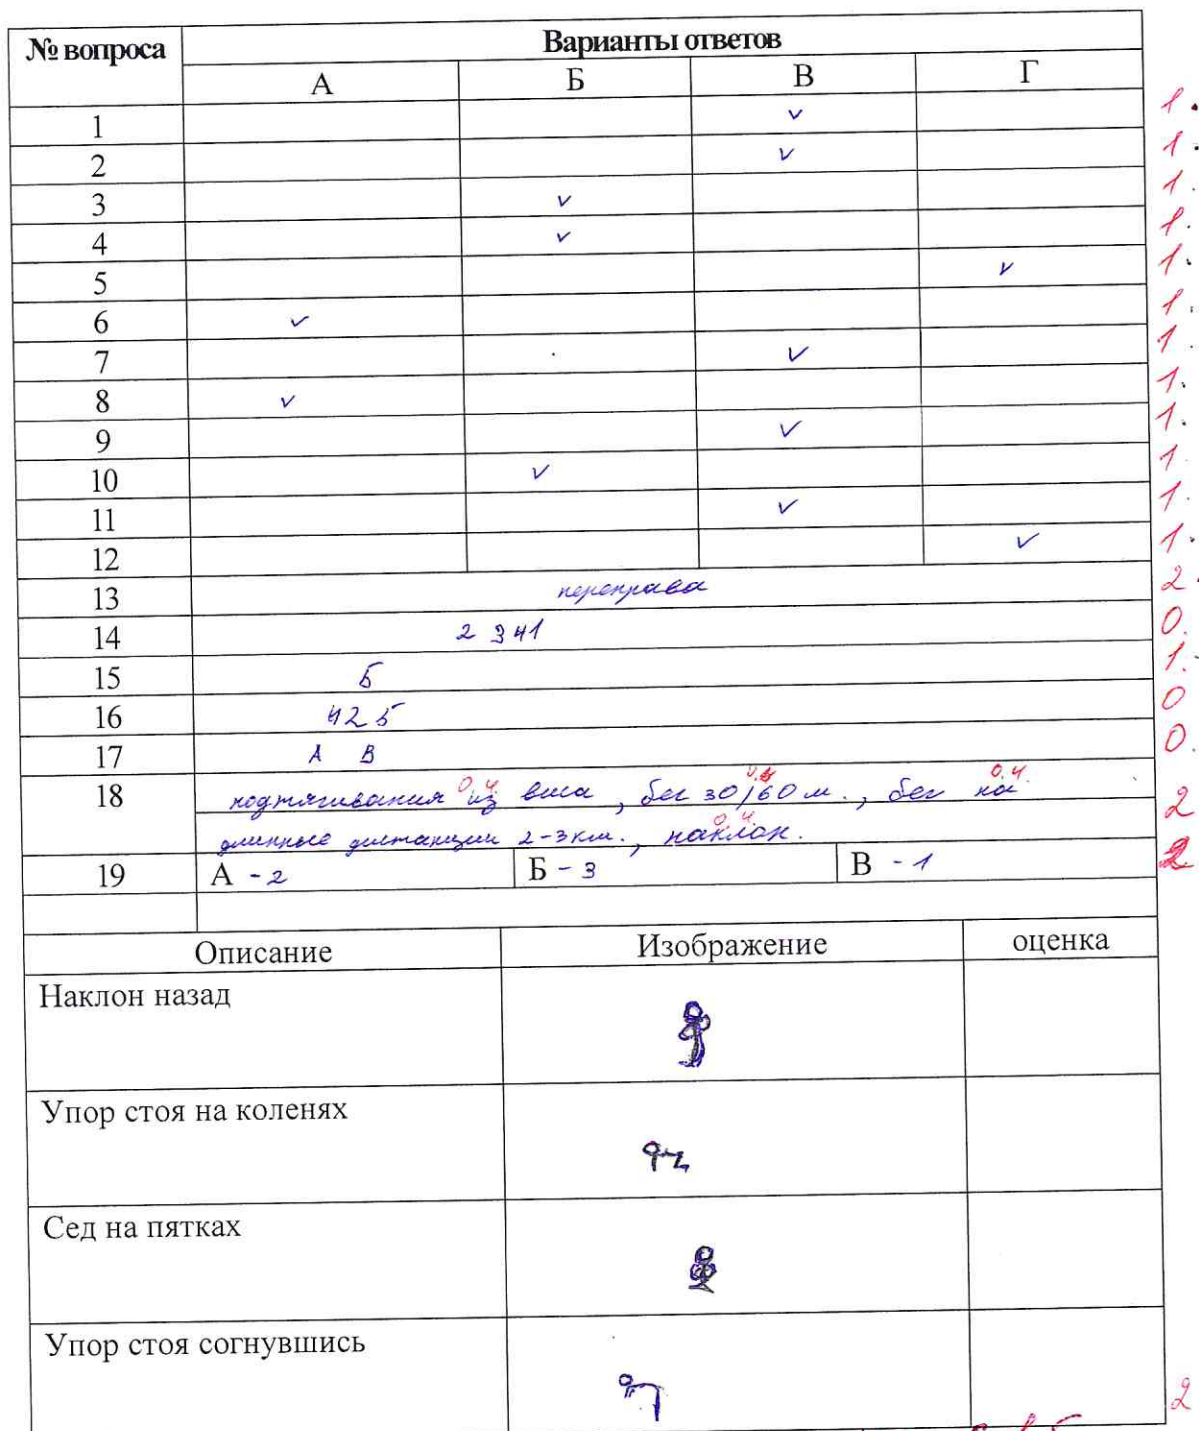 № вопроса Варианты ответов
А Б В Г
1 ✓ 1.
2 ✓ 1.
3 ✓ 1.
4 ✓ 1.
5 ✓ 1.
6 ✓ 1.
7 ✓ 1.
8 ✓ 1.
9 ✓ 1.
10 ✓ 1.
11 ✓ 1.
12 ✓ 1.
13 переправа 2.
14 2 3 4 1 0.
15 Б 1.
16 4 2 5 0
17 А В 0.
0,4 0,4 0,4
18 подтягивания из виса, бег 30/60 м., бег на 2
0,4
длинные дистанции 2-3 км., наклон.
19 А - 2 Б - 3 В - 1 2
Описание Изображение оценка
Наклон назад
Упор стоя на коленях
Сед на пятках
Упор стоя согнувшись
2